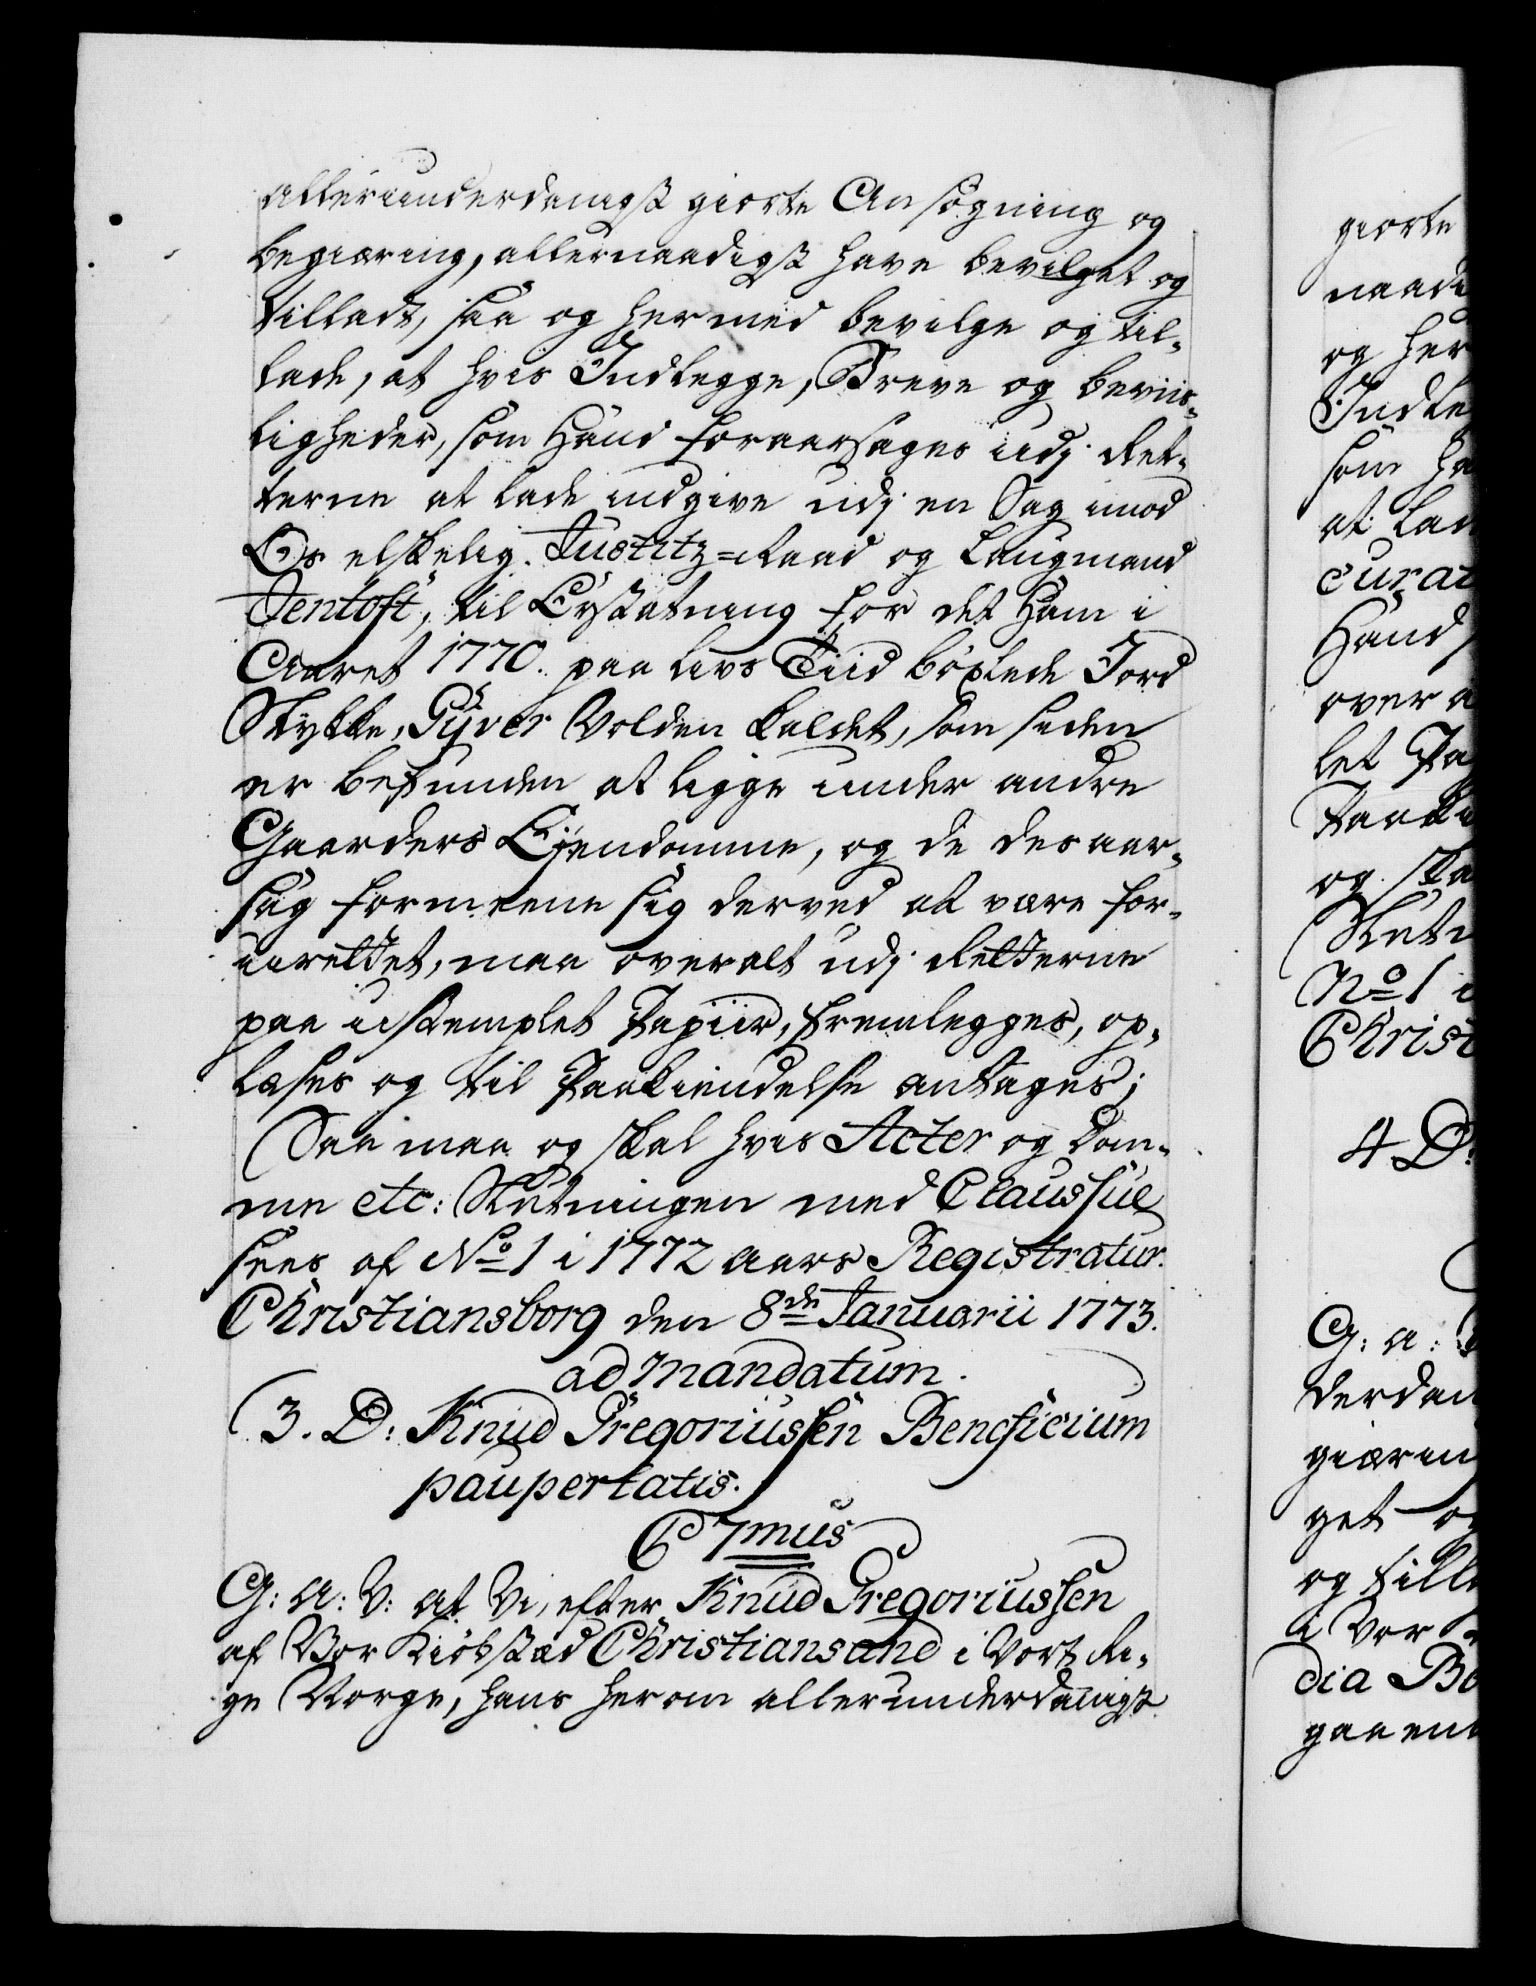 allerunderdanigst giorte Ansøgning og
begiæring, allernaadigst have bevilget og
tilladt, saa og hermed bevilge og til-
lade, at hvis Indlegge, Breve og beviis-
ligheder, som Hand foraarsages udj Ret-
terne at lade indgive udj en Sag imod
Os elskelig. Justitz=Raad og Laugmand
Jentoft, til Erstatning for det Ham i
Aaret 1770. paa livs Tiid böxlede Jord
Stykke, Gÿver Volden kaldet, som siden
er befunden at ligge under andre
Gaarders Eÿendomme, og de desaar-
sag formeene sig derved at være for-
urettet, maa overalt udj Retterne
paa ustemplet Papiir, fremlegges, op-
læses og til Paakiendelse antages;
Saa maa og skal hvis Acter og Dom-
me etc: Slutningen med Claussul
sees af No 1 i 1772 aars Registratur.
Christiansborg den 8de Januarii 1773.
ad Mandatum.
3. D: Knud Gregoriussen Beneficium
paupertatis.
C 7mus
G: A: V: at Vi, efter Knud Gregoriussen
af Vor Kiöbstæd Christiansand i Vort Ri-
ge Norge, hans herom allerunderdanigst
giorte
naadi
og her
Indle
som ha
at lad
curat
Hand
over a
let Pa
Paaki
og ska
Slutn
No 1 i
Christ
4 D:
G: A:
derdan
giærin
get og
og till
i Vor
dia B
gaaend